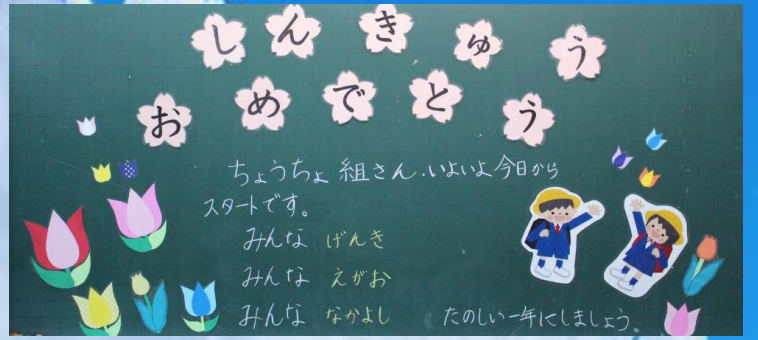 しんきゅう
おめでとう
ちょうちょ組さん.いよいよ今日から
スタートです。
みんな げんき
みんな えがお
みんな なかよし
たのしい一年にしましょう。